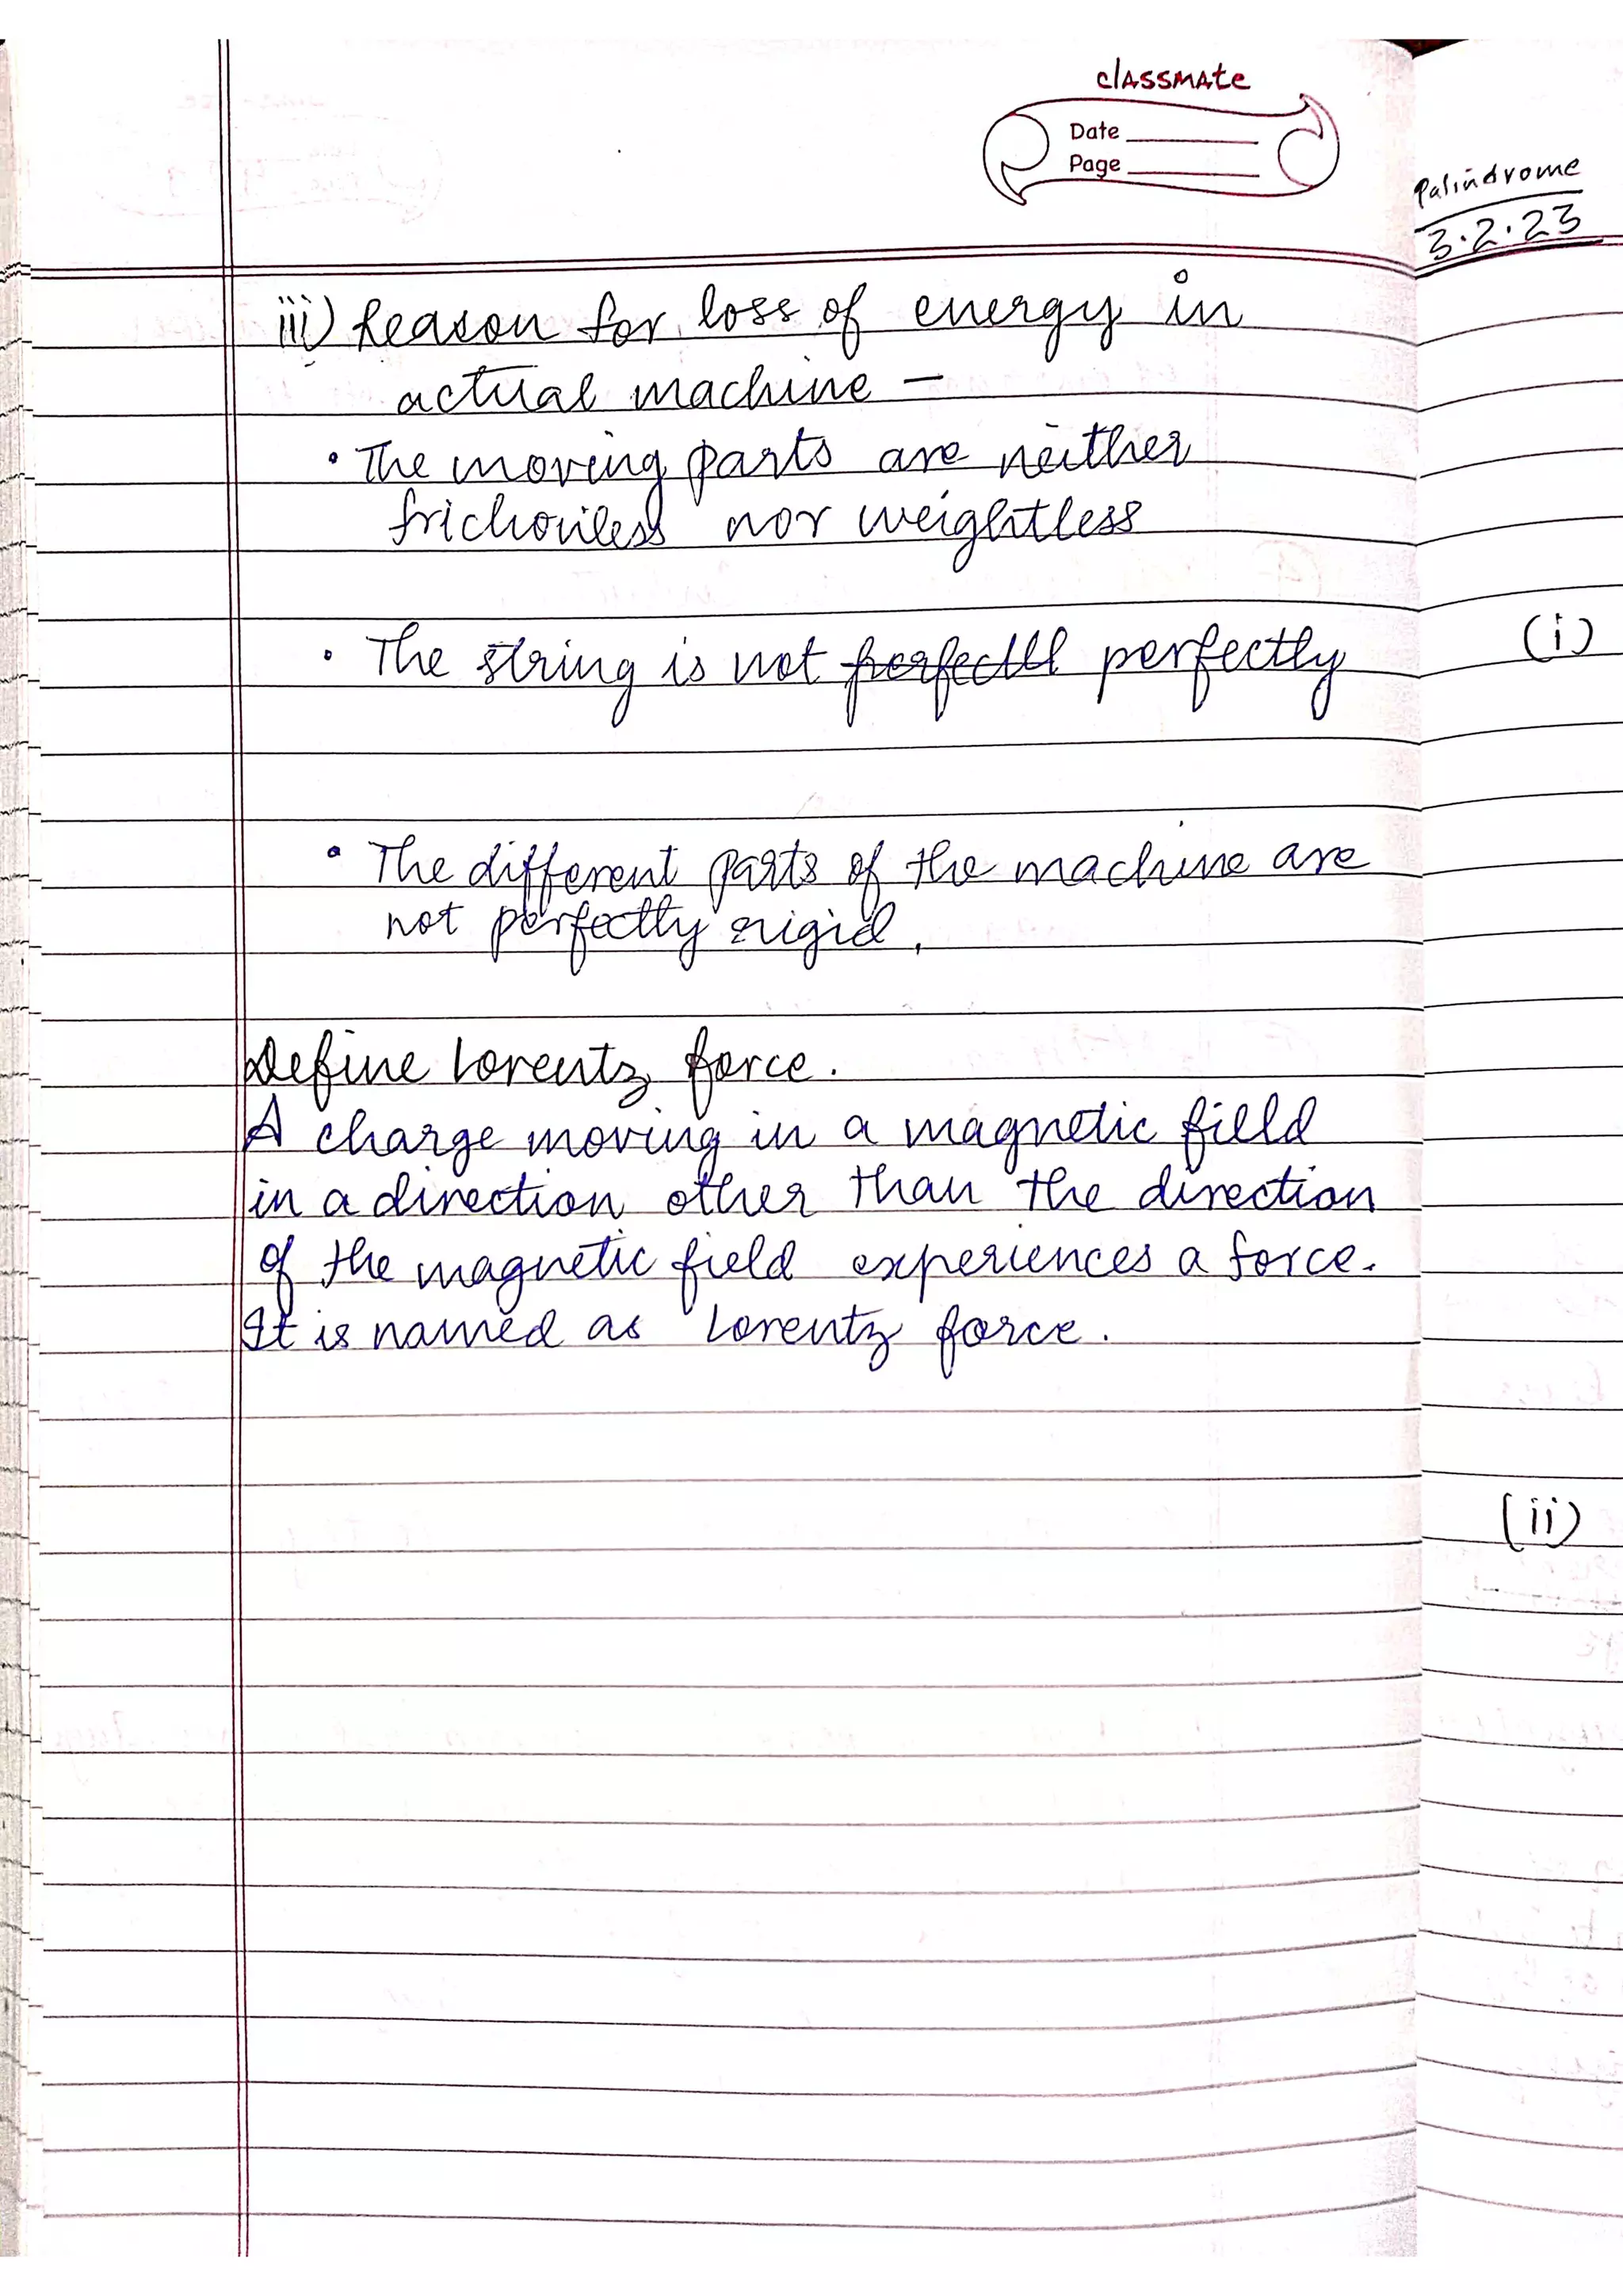 classmate
Date
Page
Palindrome
3.2.23
iii) Reason for loss of energy in
actual machine –
• The moving parts are neither
frictionless nor weightless
(i)
• The string is not perfectll perfectly
• The different parts of the machine are
not perfectly rigid.
Define Lorentz force.
A charge moving in a magnetic field
in a direction other than the direction
of the magnetic field experiences a force.
It is named as Lorentz force.
(ii)